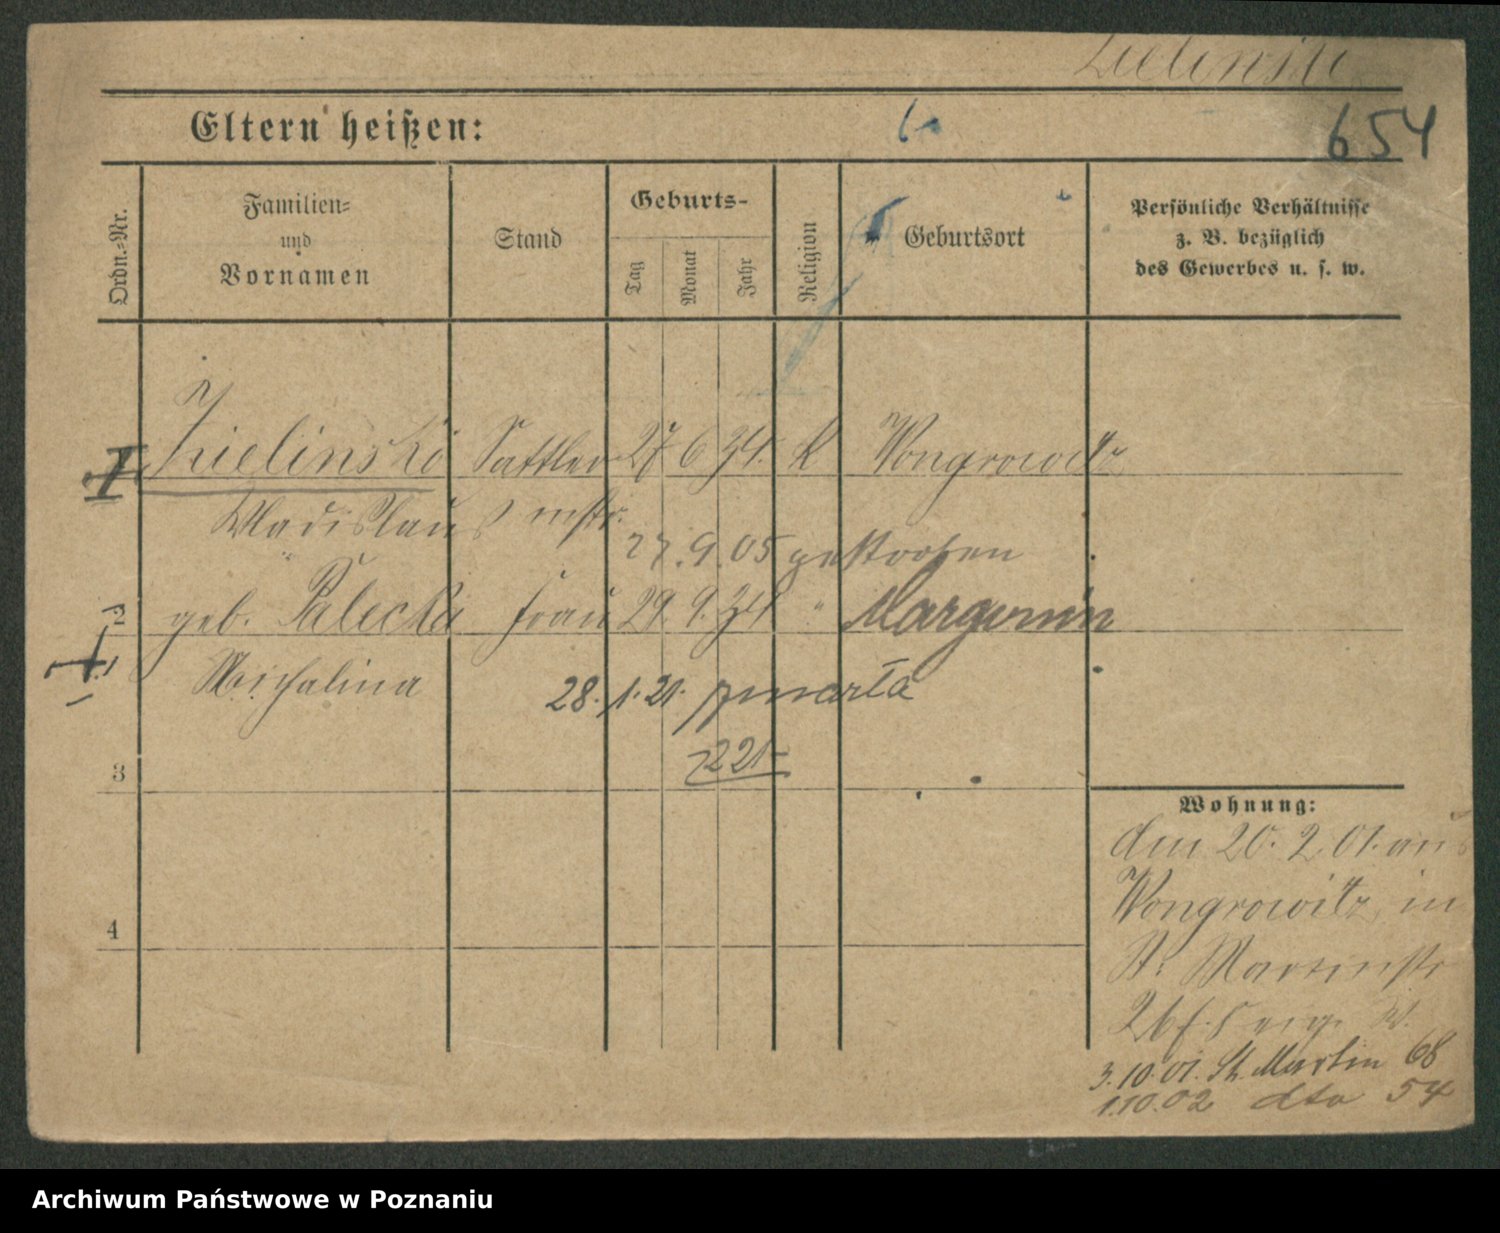 Zielinski
Eltern heißen:
654
Ordn.-Nr.
Familien-
und
Vornamen
Stand
Geburts-
Tag
Monat
Jahr
Religion
Geburtsort
Persönliche Verhältnisse
z. B. bezüglich
des Gewerbes u. s. w.
Zielinski Sattler 27 6 34. K Wongrowitz
Wladislaus mstr.
27.9.05 gestorben
2 geb. Palecka Frau 29. 9. 34 " Margonin
Michalina
28.1.21. zmarła
221
3
4
Wohnung:
den 20. 2 01. aus
Wongrowitz, in
St. Martinstr
26
3.10.01. St. Martin 68
1.10.02 dto 54
Archiwum Państwowe w Poznaniu